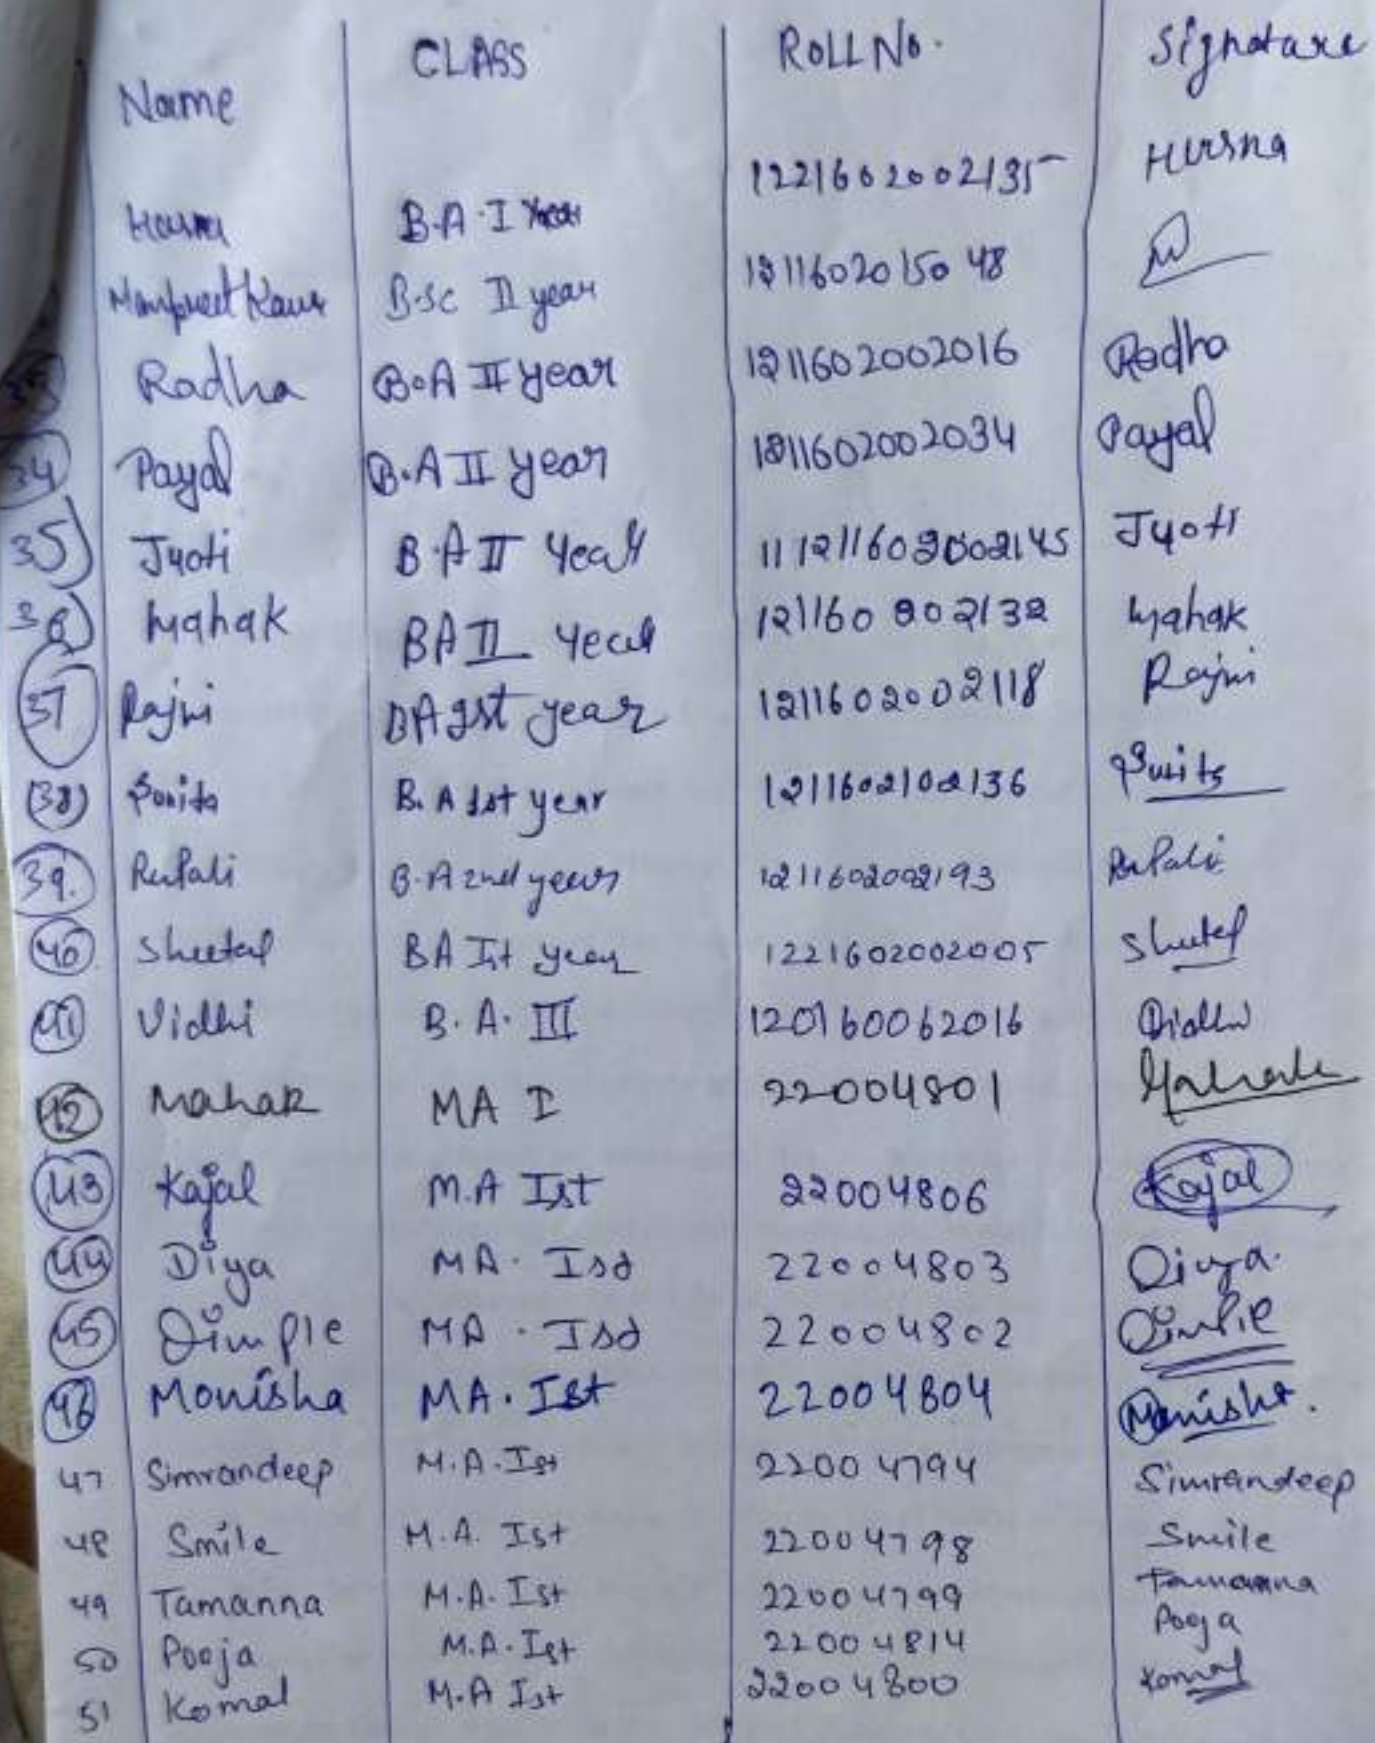 Name CLASS ROLL No. Signature
B.A. I Year 1221602002135 Husna
Manpreet Kaur B.sc II year 12116020150 48
Radha B.A II year 1211602002016 Radha
34 Payal B.A II year 1211602002034 Payal
35 Jyoti B.A II Year 11121160 2002145 Jyoti
36 Mahak BA II Year 121160 202132 Mahak
37 Rajni BA 1st year 1211602002118 Rajni
(38) Sunita B.A 1st year 1211602102136 Sunita
39. RuPali B.A 2nd year 1211602002193 RuPali
40 Sheetal BA Ist year 1221602002005 Sheetal
41 Vidhi B.A. III 120160062016 Vidhi
42 Mahak MA I 22004801 Mahak
43 Kajal M.A Ist 22004806 Kajal
44 Diya MA. Ist 22004803 Diya.
45 Dimple MA. Ist 22004802 Dimple
46 Monisha MA. Ist 22004804 Monisha.
47 Simrandeep M.A. Ist 22004794 Simrandeep
48 Smile M.A. Ist 22004798 Smile
49 Tamanna M.A. Ist 22004799 Tamanna
50 Pooja M.A. Ist 22004814 Pooja
51 Komal M.A Ist 22004800 Komal